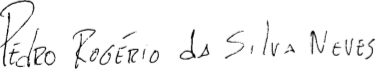 Pedro Rogério da Silva Neves